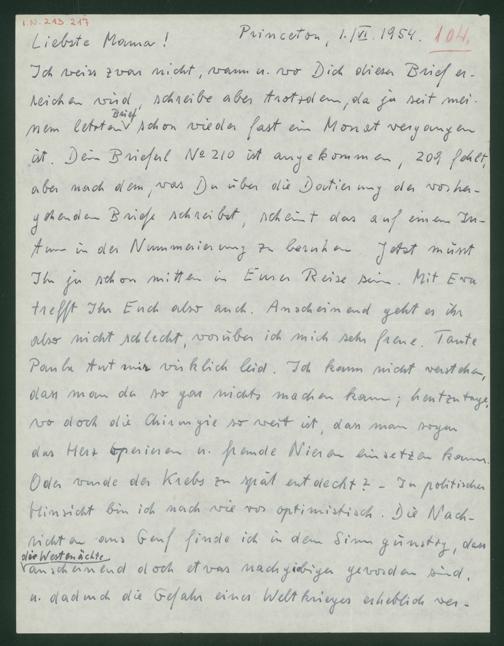 I.N. 213.217
Princeton, 1./VI. 1954. 104.
Liebste Mama!
Ich weiss zwar nicht, wann u. wo Dich dieser Brief er-
reichen wird, schreibe aber trotzdem, da ja seit mei-
nem letzten Brief schon wieder fast ein Monat vergangen
ist. Dein Brieferl No 210 ist angekommen, 209 fehlt,
aber nach dem, was Du über die Datierung des vorher-
gehenden Briefs schreibst, scheint das auf einem Irr-
tum in der Nummerierung zu beruhen. Jetzt müsst
Ihr ja schon mitten in Eurer Reise sein. Mit Eva
trefft Ihr Euch also auch. Anscheinend geht es ihr
also nicht schlecht, worüber ich mich sehr freue. Tante
Paula tut mir wirklich leid. Ich kann nicht verstehen,
dass man da so gar nichts machen kann; heutzutage,
wo doch die Chirurgie so weit ist, dass man sogar
das Herz operieren u. fremde Nieren einsetzen kann.
Oder wurde der Krebs zu spät entdeckt? – In politischer
Hinsicht bin ich nach wie vor optimistisch. Die Nach-
richten aus Genf finde ich in dem Sinn günstig, dass
die Westmächte
anscheinend doch etwas nachgiebiger geworden sind,
u. dadurch die Gefahr eines Weltkrieges erheblich ver-